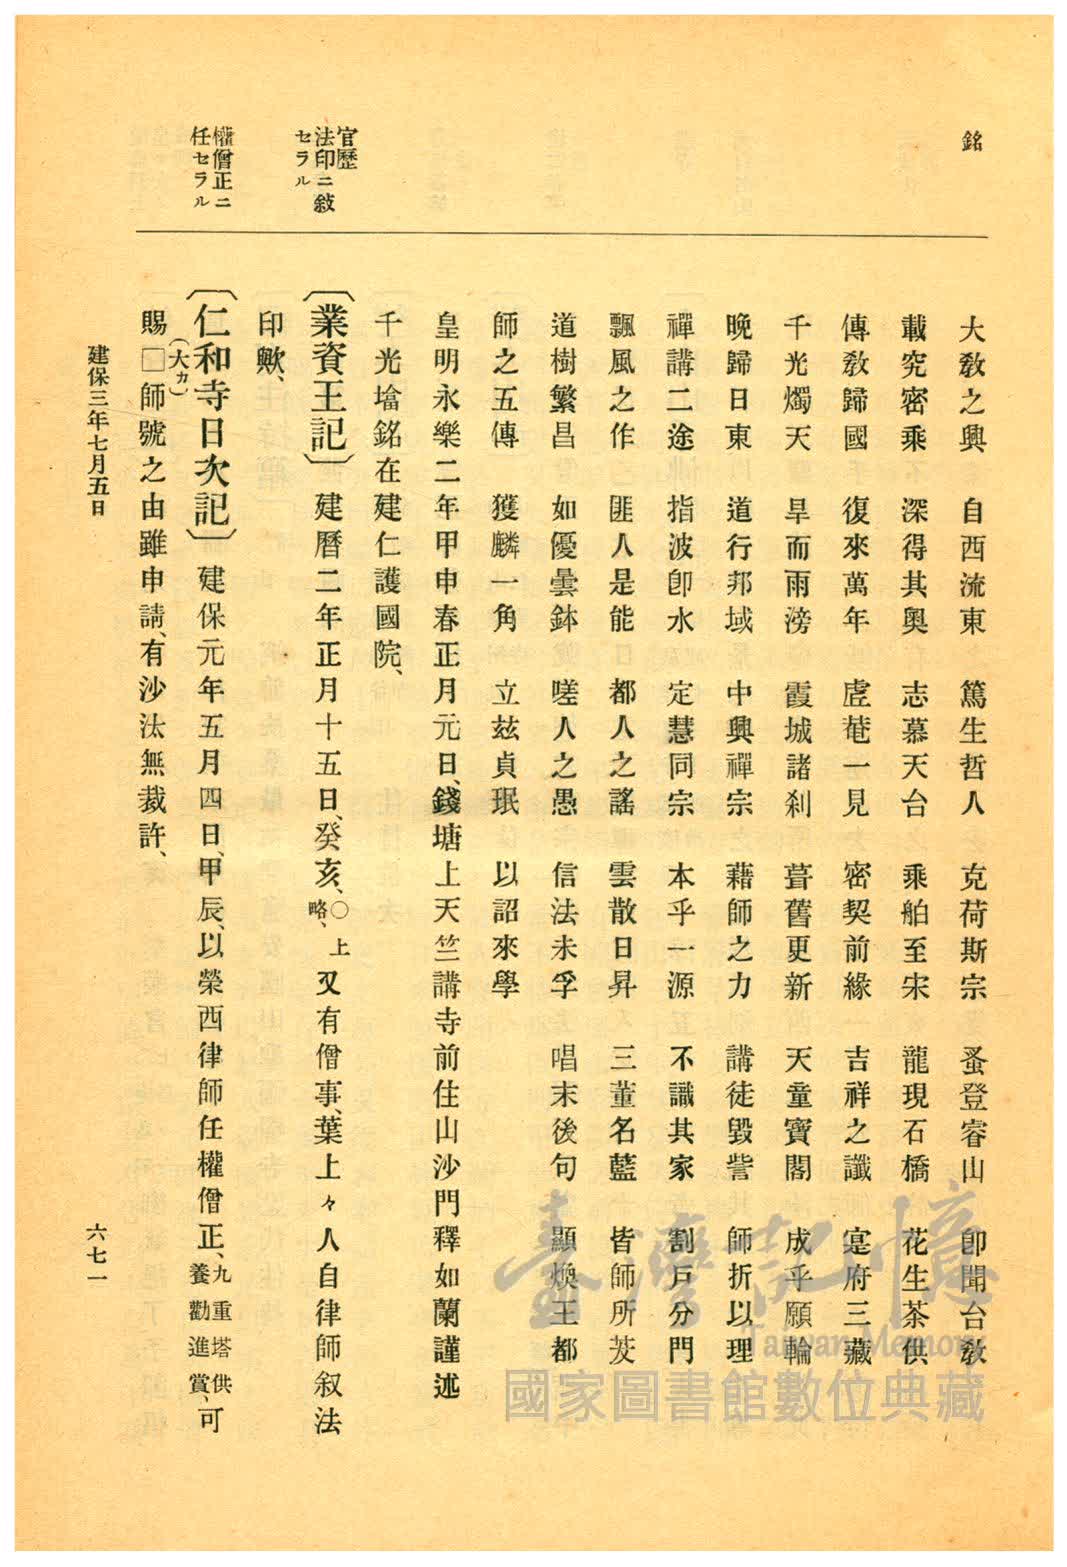 銘
大敎之興　自西流東　篤生哲人　克荷斯宗　蚤登睿山　卽聞台敎
載究密乘　深得其奧　志慕天台　乘舶至宋　龍現石橋　花生茶供
傳敎歸國　復來萬年　虛菴一見　密契前緣　吉祥之讖　寔府三藏
千光燭天　旱而雨滂　霞城諸刹　葺舊更新　天童寶閣　成乎願輪
晩歸日東　道行邦域　中興禪宗　藉師之力　講徒毀訾　師折以理
禪講二途　指波卽水　定慧同宗　本乎一源　不識其家　割戶分門
飄風之作　匪人是能　都人之謠　雲散日昇　三董名藍　皆師所茇
道樹繁昌　如優曇鉢　嗟人之愚　信法未孚　唱末後句　顯煥王都
師之五傳　獲麟一角　立玆貞珉　以詔來學
皇明永樂二年甲申春正月元日、錢塘上天竺講寺前住山沙門釋如蘭謹述
千光塔銘在建仁護國院、
官歷
法印ニ敍
セラル
〔業資王記〕　建曆二年正月十五日、癸亥、〇上略、又有僧事、葉上々人自律師叙法
印歟、
權僧正ニ
任セラル
〔仁和寺日次記〕　建保元年五月四日、甲辰、以榮西律師任權僧正、九重塔供養勸進賞、可
賜□(大カ)師號之由雖申請、有沙汰無裁許、
建保三年七月五日
六七一
臺灣記憶
Taiwan Memory
國家圖書館數位典藏